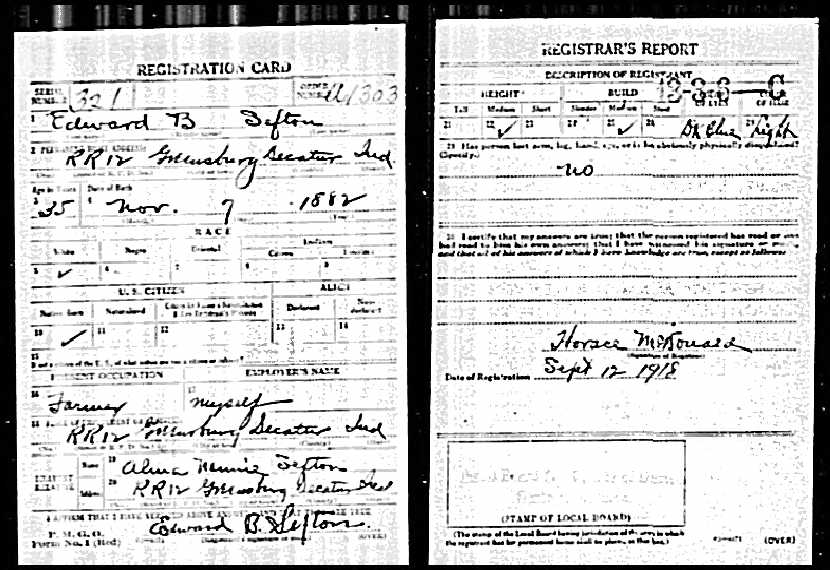 REGISTRATION CARD
SERIAL NUMBER 321
ORDER NUMBER
1 Edward B Sefton
2 PERMANENT HOME ADDRESS
RR12 Greensburg Decatur Ind
Age in Years Date of Birth
3 35 4 Nov. 7 1882
RACE
White Negro Oriental Indian
Citizen
5 ✓ 6 7 8 9
U. S. CITIZEN ALIEN
Native Born Naturalized Declared Non-declarant
10 ✓ 11 12 13 14
15
PRESENT OCCUPATION EMPLOYER'S NAME
16 Farmer 17 myself
RR12 Greensburg Decatur Ind
NEAREST RELATIVE
Name 19 Alma Nannie Sefton
Address 20 RR12 Greensburg Decatur Ind
I AFFIRM THAT I HAVE VERIFIED ABOVE ANSWERS AND THAT THEY ARE TRUE
Edward B. Sefton
P. M. G. O.
Form No. 1 (Red) (OVER)
REGISTRAR'S REPORT
DESCRIPTION OF REGISTRANT
HEIGHT BUILD COLOR OF EYES COLOR OF HAIR
Tall Medium Short Slender Medium Stout
21 22 ✓ 23 24 25 ✓ 26 Dk Blue Light
29 Has person lost arm, leg, hand, eye, or is he obviously physically disqualified?
(Specify.)
no
30 I certify that my answers are true; that the person registered has read or has
had read to him his own answers; that I have witnessed his signature or mark,
and that all of his answers of which I have knowledge are true, except as follows:
Horace McDonald
(Signature of Registrar)
Date of Registration Sept 12 1918
(STAMP OF LOCAL BOARD)
(The stamp of the Local Board having jurisdiction of the area in which
the registrant has his permanent home shall be placed in this box.)
(OVER)